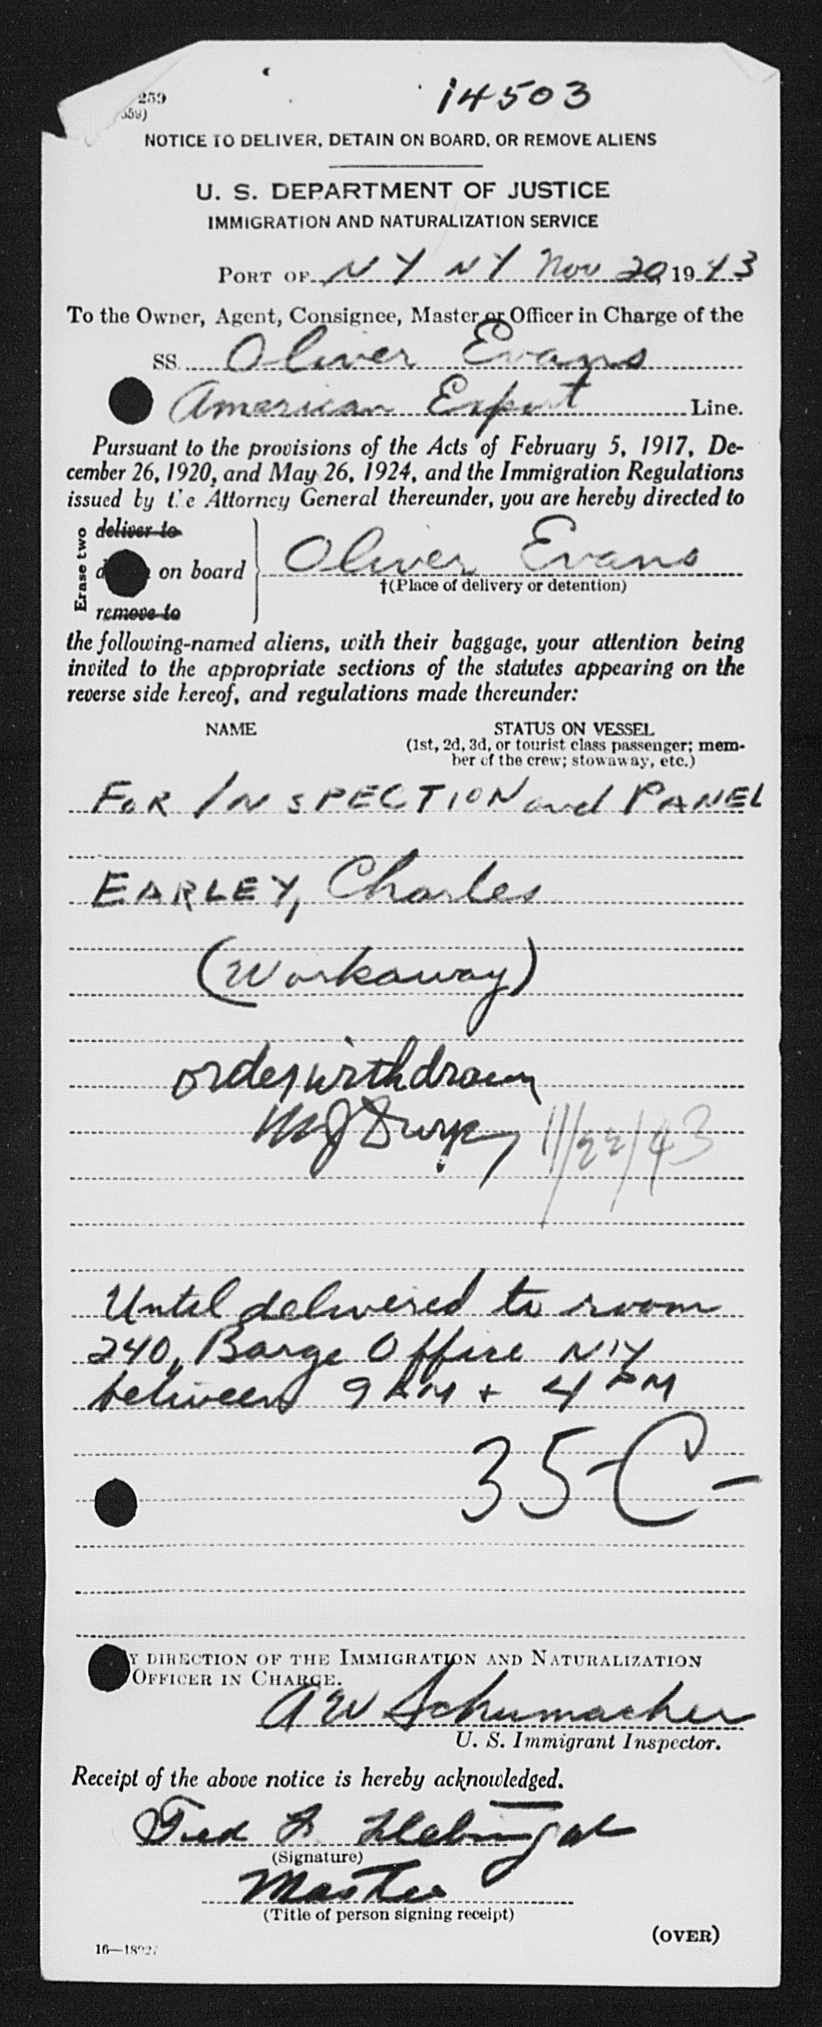 14503
259
NOTICE TO DELIVER, DETAIN ON BOARD, OR REMOVE ALIENS
U. S. DEPARTMENT OF JUSTICE
IMMIGRATION AND NATURALIZATION SERVICE
PORT OF NY NY Nov 20, 1943
To the Owner, Agent, Consignee, Master or Officer in Charge of the
SS Oliver Evans
American Export Line.
Pursuant to the provisions of the Acts of February 5, 1917, De-
cember 26, 1920, and May 26, 1924, and the Immigration Regulations
issued by the Attorney General thereunder, you are hereby directed to
Erase two
deliver to
on board Oliver Evans
†(Place of delivery or detention)
remove to
the following-named aliens, with their baggage, your attention being
invited to the appropriate sections of the statutes appearing on the
reverse side hereof, and regulations made thereunder:
NAME STATUS ON VESSEL
(1st, 2d, 3d, or tourist class passenger; mem-
ber of the crew; stowaway, etc.)
FOR INSPECTION and PANEL
EARLEY, Charles
(Workaway)
order withdrawn
11/22/43
Until delivered to room
240, Barge Office NY
between 9 AM + 4 PM
35-C-
Y DIRECTION OF THE IMMIGRATION AND NATURALIZATION
OFFICER IN CHARGE.
AW Schumacher
U. S. Immigrant Inspector.
Receipt of the above notice is hereby acknowledged.
Fred
(Signature)
Master
(Title of person signing receipt)
(OVER)